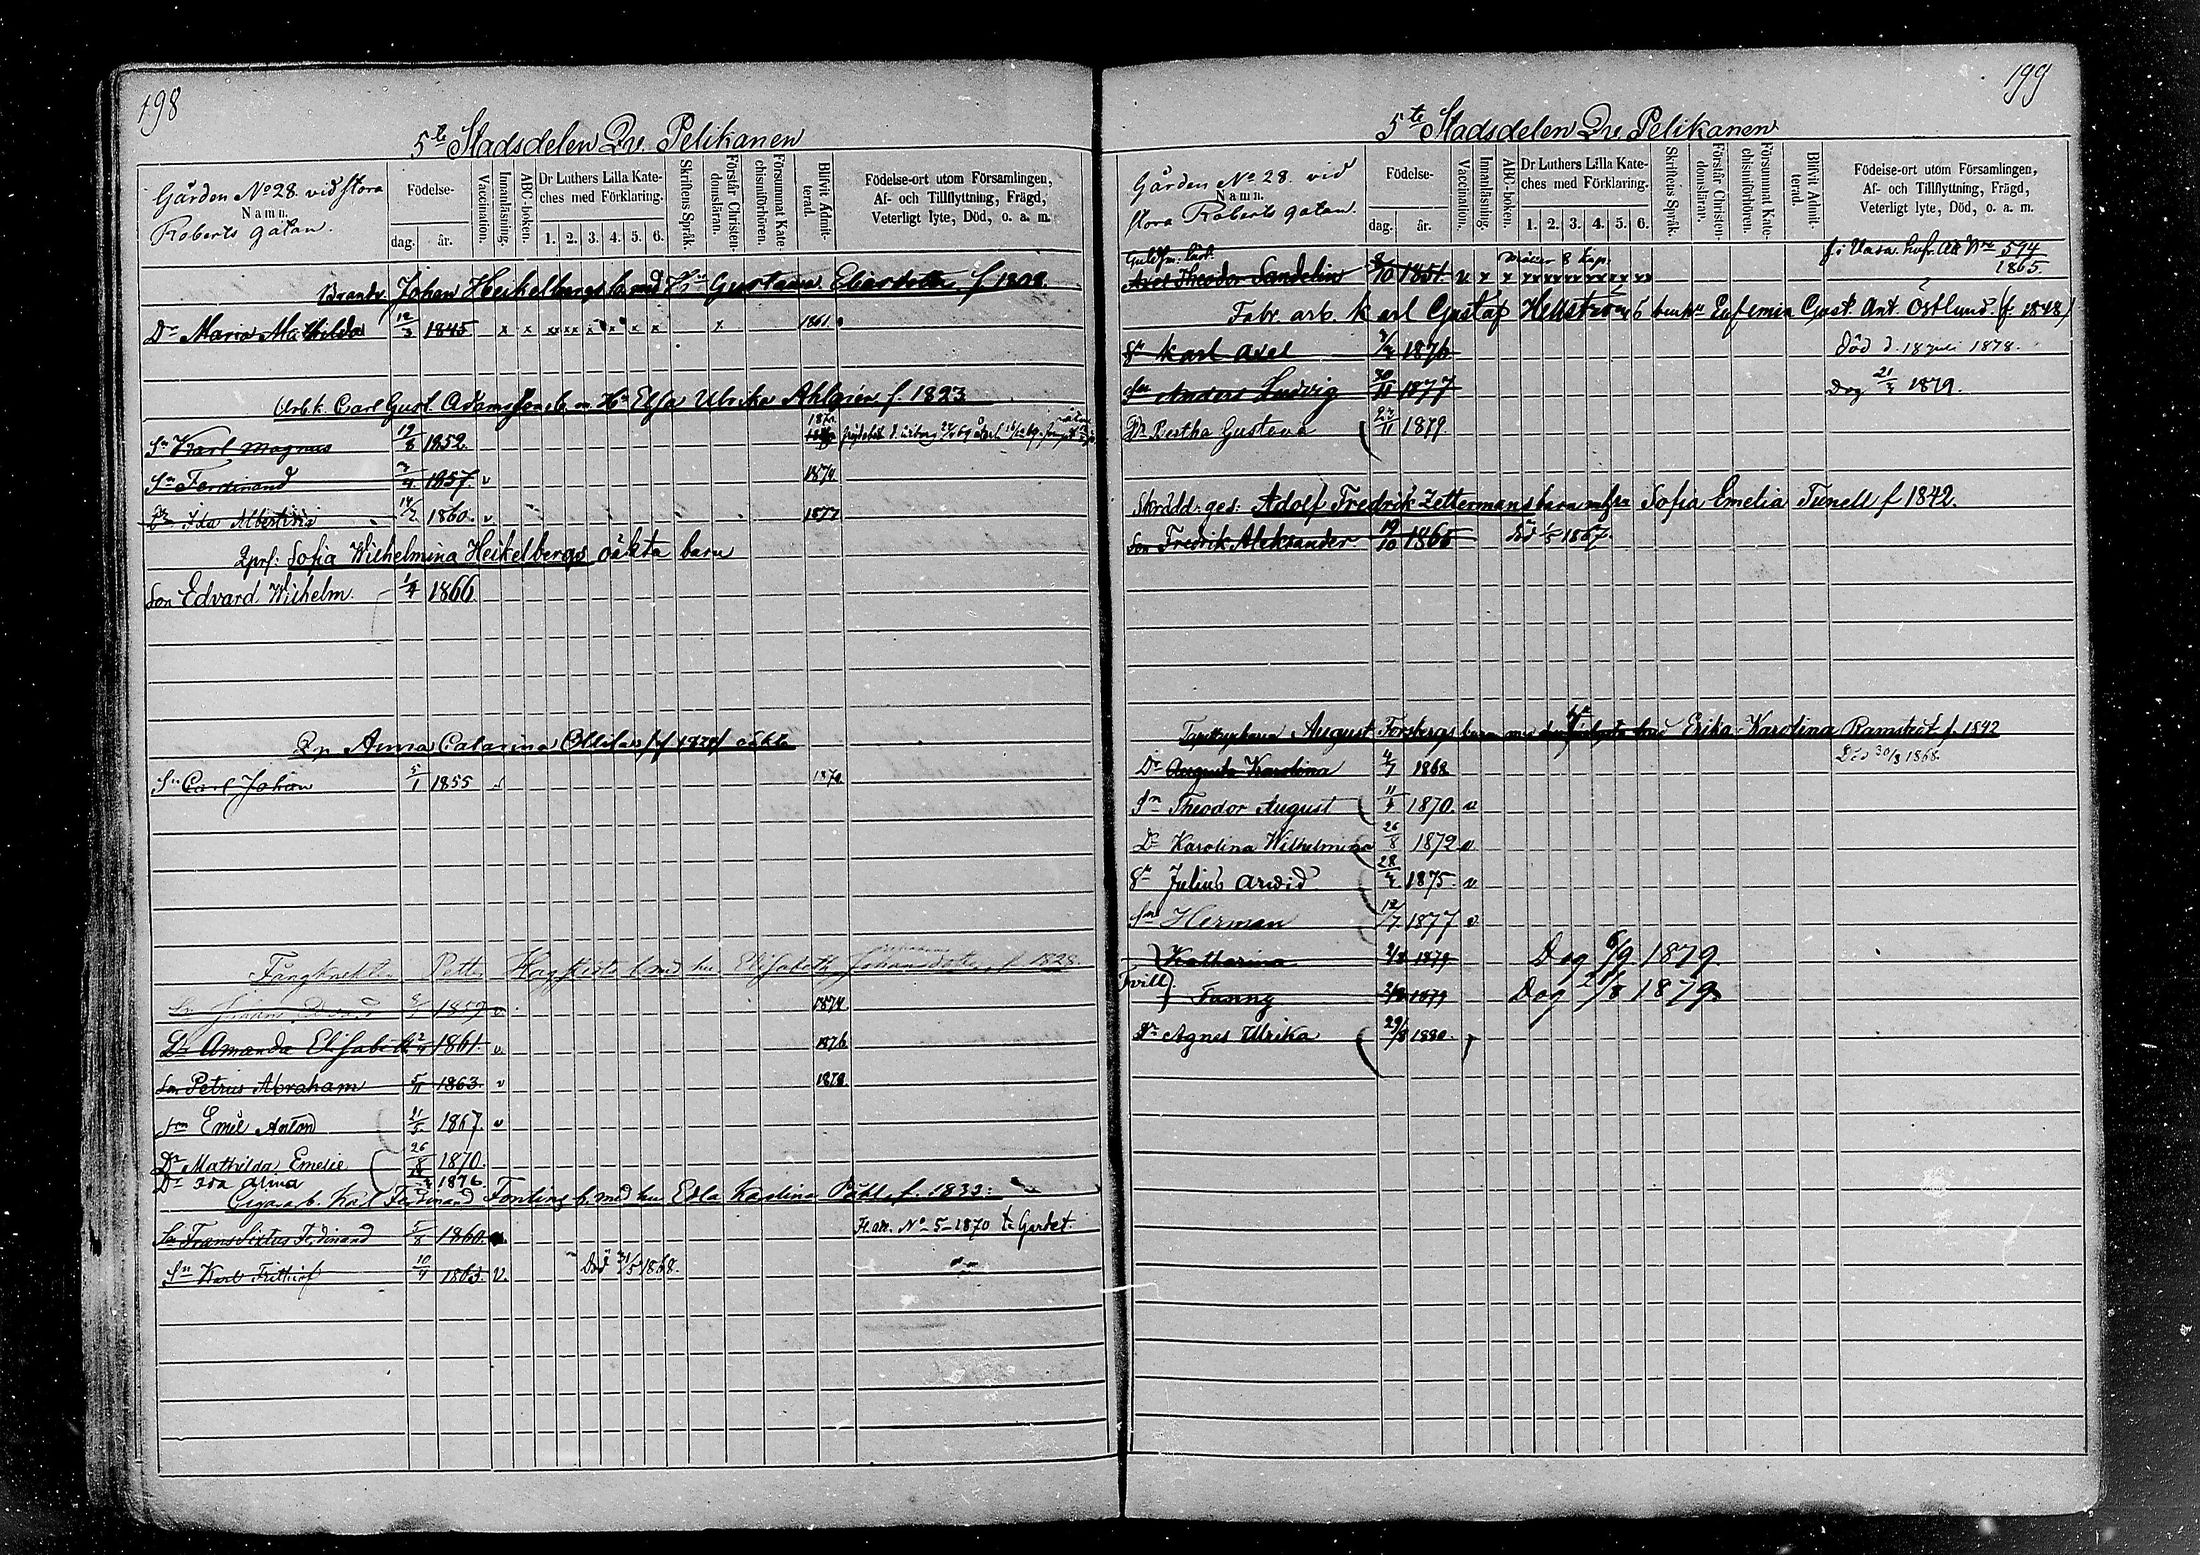 198
5te Stadsdelen Qv. Pelikanen
Gården No 28. vid stora
Namn.
Roberts gatan.
Födelse-
dag. år.
Vaccination.
Innanläsning.
ABC-boken.
Dr Luthers Lilla Kate-
ches med Förklaring.
1. 2. 3. 4. 5. 6.
Skriftens Språk.
Förstår Christen-
domsläran.
Försummat Kate-
chismiförhören.
Blifvit Admit-
terad.
Födelse-ort utom Församlingen,
Af- och Tillflyttning, Frägd,
Veterligt lyte, Död, o. a. m.
Johan Heikelbergs b. med Hu Gustava f. 1808
Dr Maria Mathilda 12/3 1845 x x xx x x x x x 1861
Arb.k. Carl Gust. Adamssons b. m Hu Elsa Ulrika f. 1823
Sn Karl Magnus 19/8 1852.
Sn Ferdinand 1857. v 1874
Dr Ida Albertina 14/2 1860. v 1877
Qprs: Sofia Wilhelmina Heikelbergs oäkta barn
Son Edvard Wilhelm 1/4 1866
Qp Anna Catarina oäkta
Sn Carl Johan 5/1 1855 1870
Petter b. med hu Elisabeth f. 1828.
1859 v 1874
Dr Amanda Elisabeth 1861. v 1876
Son Petrus Abraham 5/11 1863. v 1879
Son Emil Anton 11/5 1867. v
Dr Mathilda Emelie 26/8 1870.
Dr Ida Alina 1876
Karl Ferdinand b. med hu Edla Karolina f. 1833.
Sn Frans Sixtus Ferdinand 1860.
No 5 1870
Sn Karl Frithiof 10/4 1863. v. Död 31/5 1868.
199
5te Stadsdelen Qv. Pelikanen
Gården No 28. vid
Namn.
stora Roberts gatan.
Födelse-
dag. år.
Vaccination.
Innanläsning.
ABC-boken.
Dr Luthers Lilla Kate-
ches med Förklaring.
1. 2. 3. 4. 5. 6.
Skriftens Språk.
Förstår Christen-
domsläran.
Försummat Kate-
chismiförhören.
Blifvit Admit-
terad.
Födelse-ort utom Församlingen,
Af- och Tillflyttning, Frägd,
Veterligt lyte, Död, o. a. m.
Axel Theodor Sandelin 8/10 1851. v x x
594/1865.
Fabr. arb. Karl Gustaf Hellströms b m hu Eufemia Gust. Ant. Östlund (f. 1848)
Sn Karl Axel 1876 Död d. 18 juli 1878.
Sn Anders Ludvig 30/11 1877 Dog 21/3 1879.
Dr Bertha Gustava 23/11 1879
Skrädd. ges: Adolf Fredrik Zettermans barn m hu Sofia Emelia Tunell f 1842.
Son Fredrik Aleksander 19/10 1865 död 1/5 1867.
August Forsbergs barn med Erika Karolina Ramstedt f. 1842
Dr Augusta Karolina 1868 Död 30/8 1868.
Sn Theodor August 11/4 1870. v
Dr Karolina Wilhelmina 26/8 1872 v
Sn Julius Arvid 28/4 1875. v
Sn Herman 12/7 1877 v
Katharina 1879 Dog 6/9 1879
Tvill. Fanny 1879 Dog 21/8 1879
Dr Agnes Ulrika 29/8 1880.